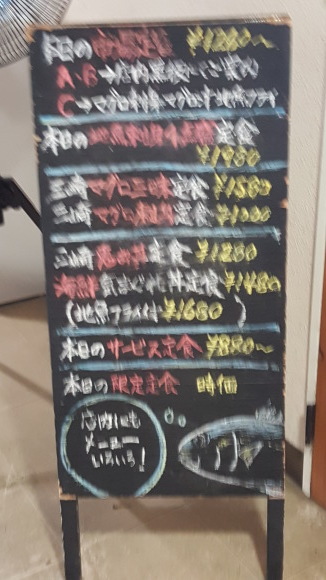 本日の定食 ¥1280〜
A・B→店内黒板にてご案内
C→マグロ
本日の地魚刺身4点盛定食
¥1980
三崎マグロ三昧定食 ¥1580
三崎マグロ定食 ¥1000
三崎丼定食 ¥1280
海鮮気まぐれ丼定食 ¥1480
(地魚フライ付 ¥1680)
本日のサービス定食 ¥880〜
本日の限定定食 時価
店内にも
メニュー
いろいろ!